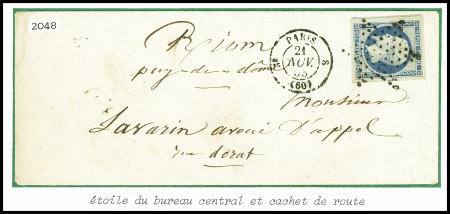 2048
Riom
puy-de-dôme
PARIS
21
NOV
53
(60)
Monsieur
Lavarin avoué D'appel
rue dorat
étoile du bureau central et cachet de route